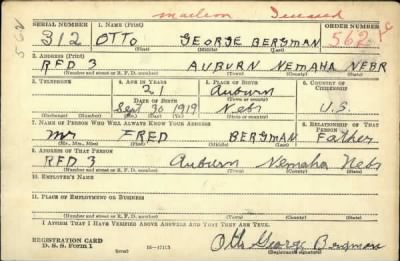 Deceased
SERIAL NUMBER 1. NAME (Print) ORDER NUMBER
312 OTTO GEORGE BERGMAN 562
(First) (Middle) (Last)
2. ADDRESS (Print)
RFD 3 AUBURN NEMAHA NEBR
(Number and street or R. F. D. number) (Town) (County) (State)
3. TELEPHONE 4. AGE IN YEARS 5. PLACE OF BIRTH 6. COUNTRY OF CITIZENSHIP
21 Auburn
DATE OF BIRTH (Town or county)
Sept 30 1919 Nebr U.S.
(Exchange) (Number) (Mo.) (Day) (Yr.) (State or country)
7. NAME OF PERSON WHO WILL ALWAYS KNOW YOUR ADDRESS 8. RELATIONSHIP OF THAT PERSON
Mr FRED BERGMAN Father
(Mr., Mrs., Miss) (First) (Middle) (Last)
9. ADDRESS OF THAT PERSON
RFD 3 Auburn Nemaha Nebr
(Number and street or R. F. D. number) (Town) (County) (State)
10. EMPLOYER'S NAME
11. PLACE OF EMPLOYMENT OR BUSINESS
(Number and street or R. F. D. number) (Town) (County) (State)
I AFFIRM THAT I HAVE VERIFIED ABOVE ANSWERS AND THAT THEY ARE TRUE.
REGISTRATION CARD
D. S. S. FORM 1 (over) 16-17105 Otto George Bergman
(Registrant's signature)